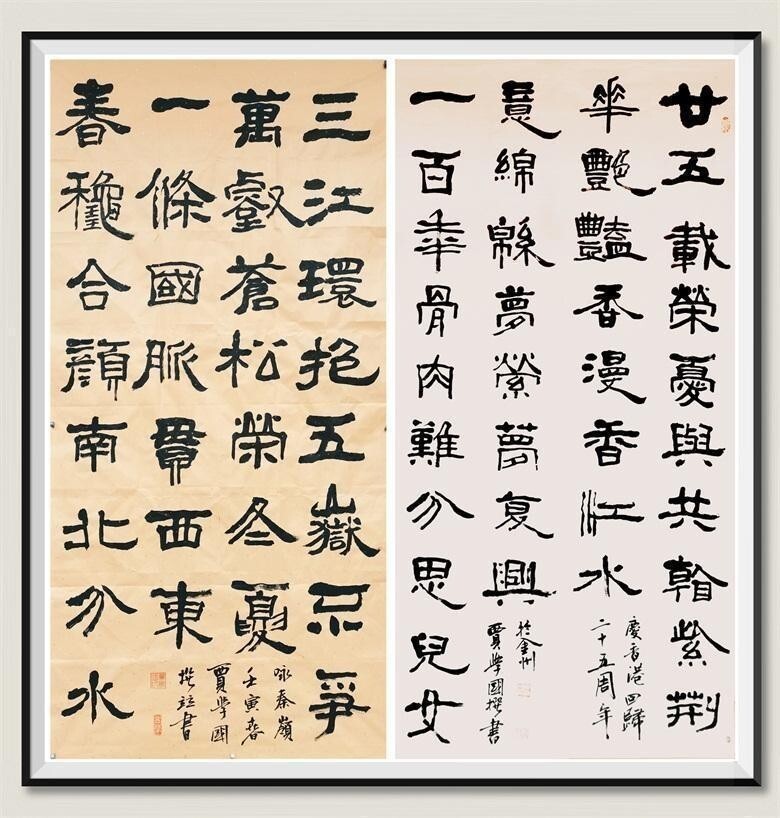 廿五載榮憂與共翰紫荆
華艷豔香漫香江水
慶香港回歸
二十五周年
意綿緜夢縈夢复興
於金州
賈學國撰書
一百年骨肉難分思兒女
三江環抱五嶽尔爭
萬壑蒼松榮冬夏
咏秦嶺
壬寅春
賈學國
撰并書
一條國脈貫西東
春穐合顔南北分水